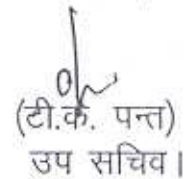 (टी.के. पन्त)
उप सचिव।